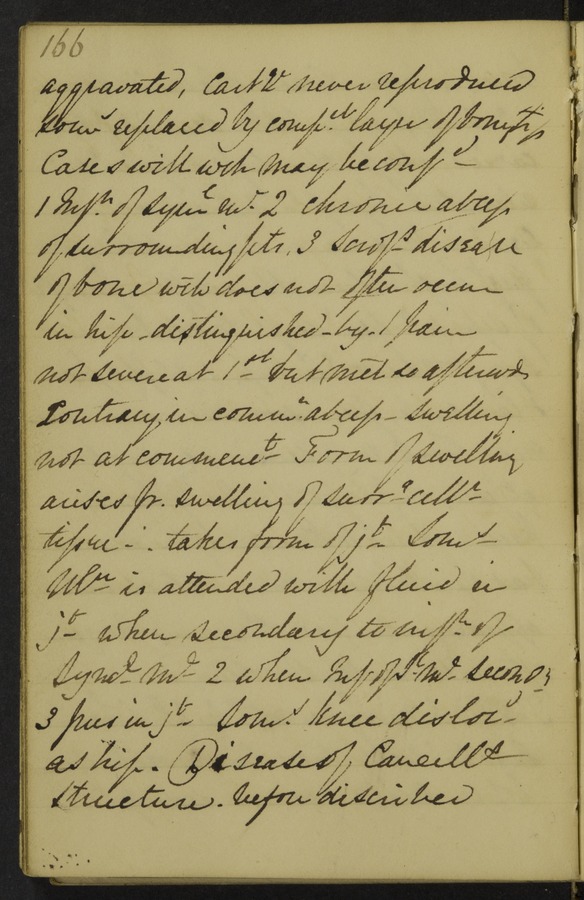 166
aggravated, Cart.e never reproduced
som.s replaced by comp.ct layer of bony
Cases with wch may be conf.d
1 Inf.n of syn.l m. 2 chronic abcess
of surrounding pts. 3 Scrof.s disease
of bone wch does not often occur
in hip - distinguished - by - 1 pain
not severe at 1st but mct so afterwds
Contrary in comm.n abcess - swelling
not at commenct Form of swelling
arises fr. swelling of surr.g cellr
tissue - ∴ takes form of jt. Soms
Ulcn is attended with fluid in
jt - when secondary to infn of
Synd. md 2 when secondy
3 pus in jt - Soms knee disloc.d
as hip. Diseases of Cancells
structure. before described